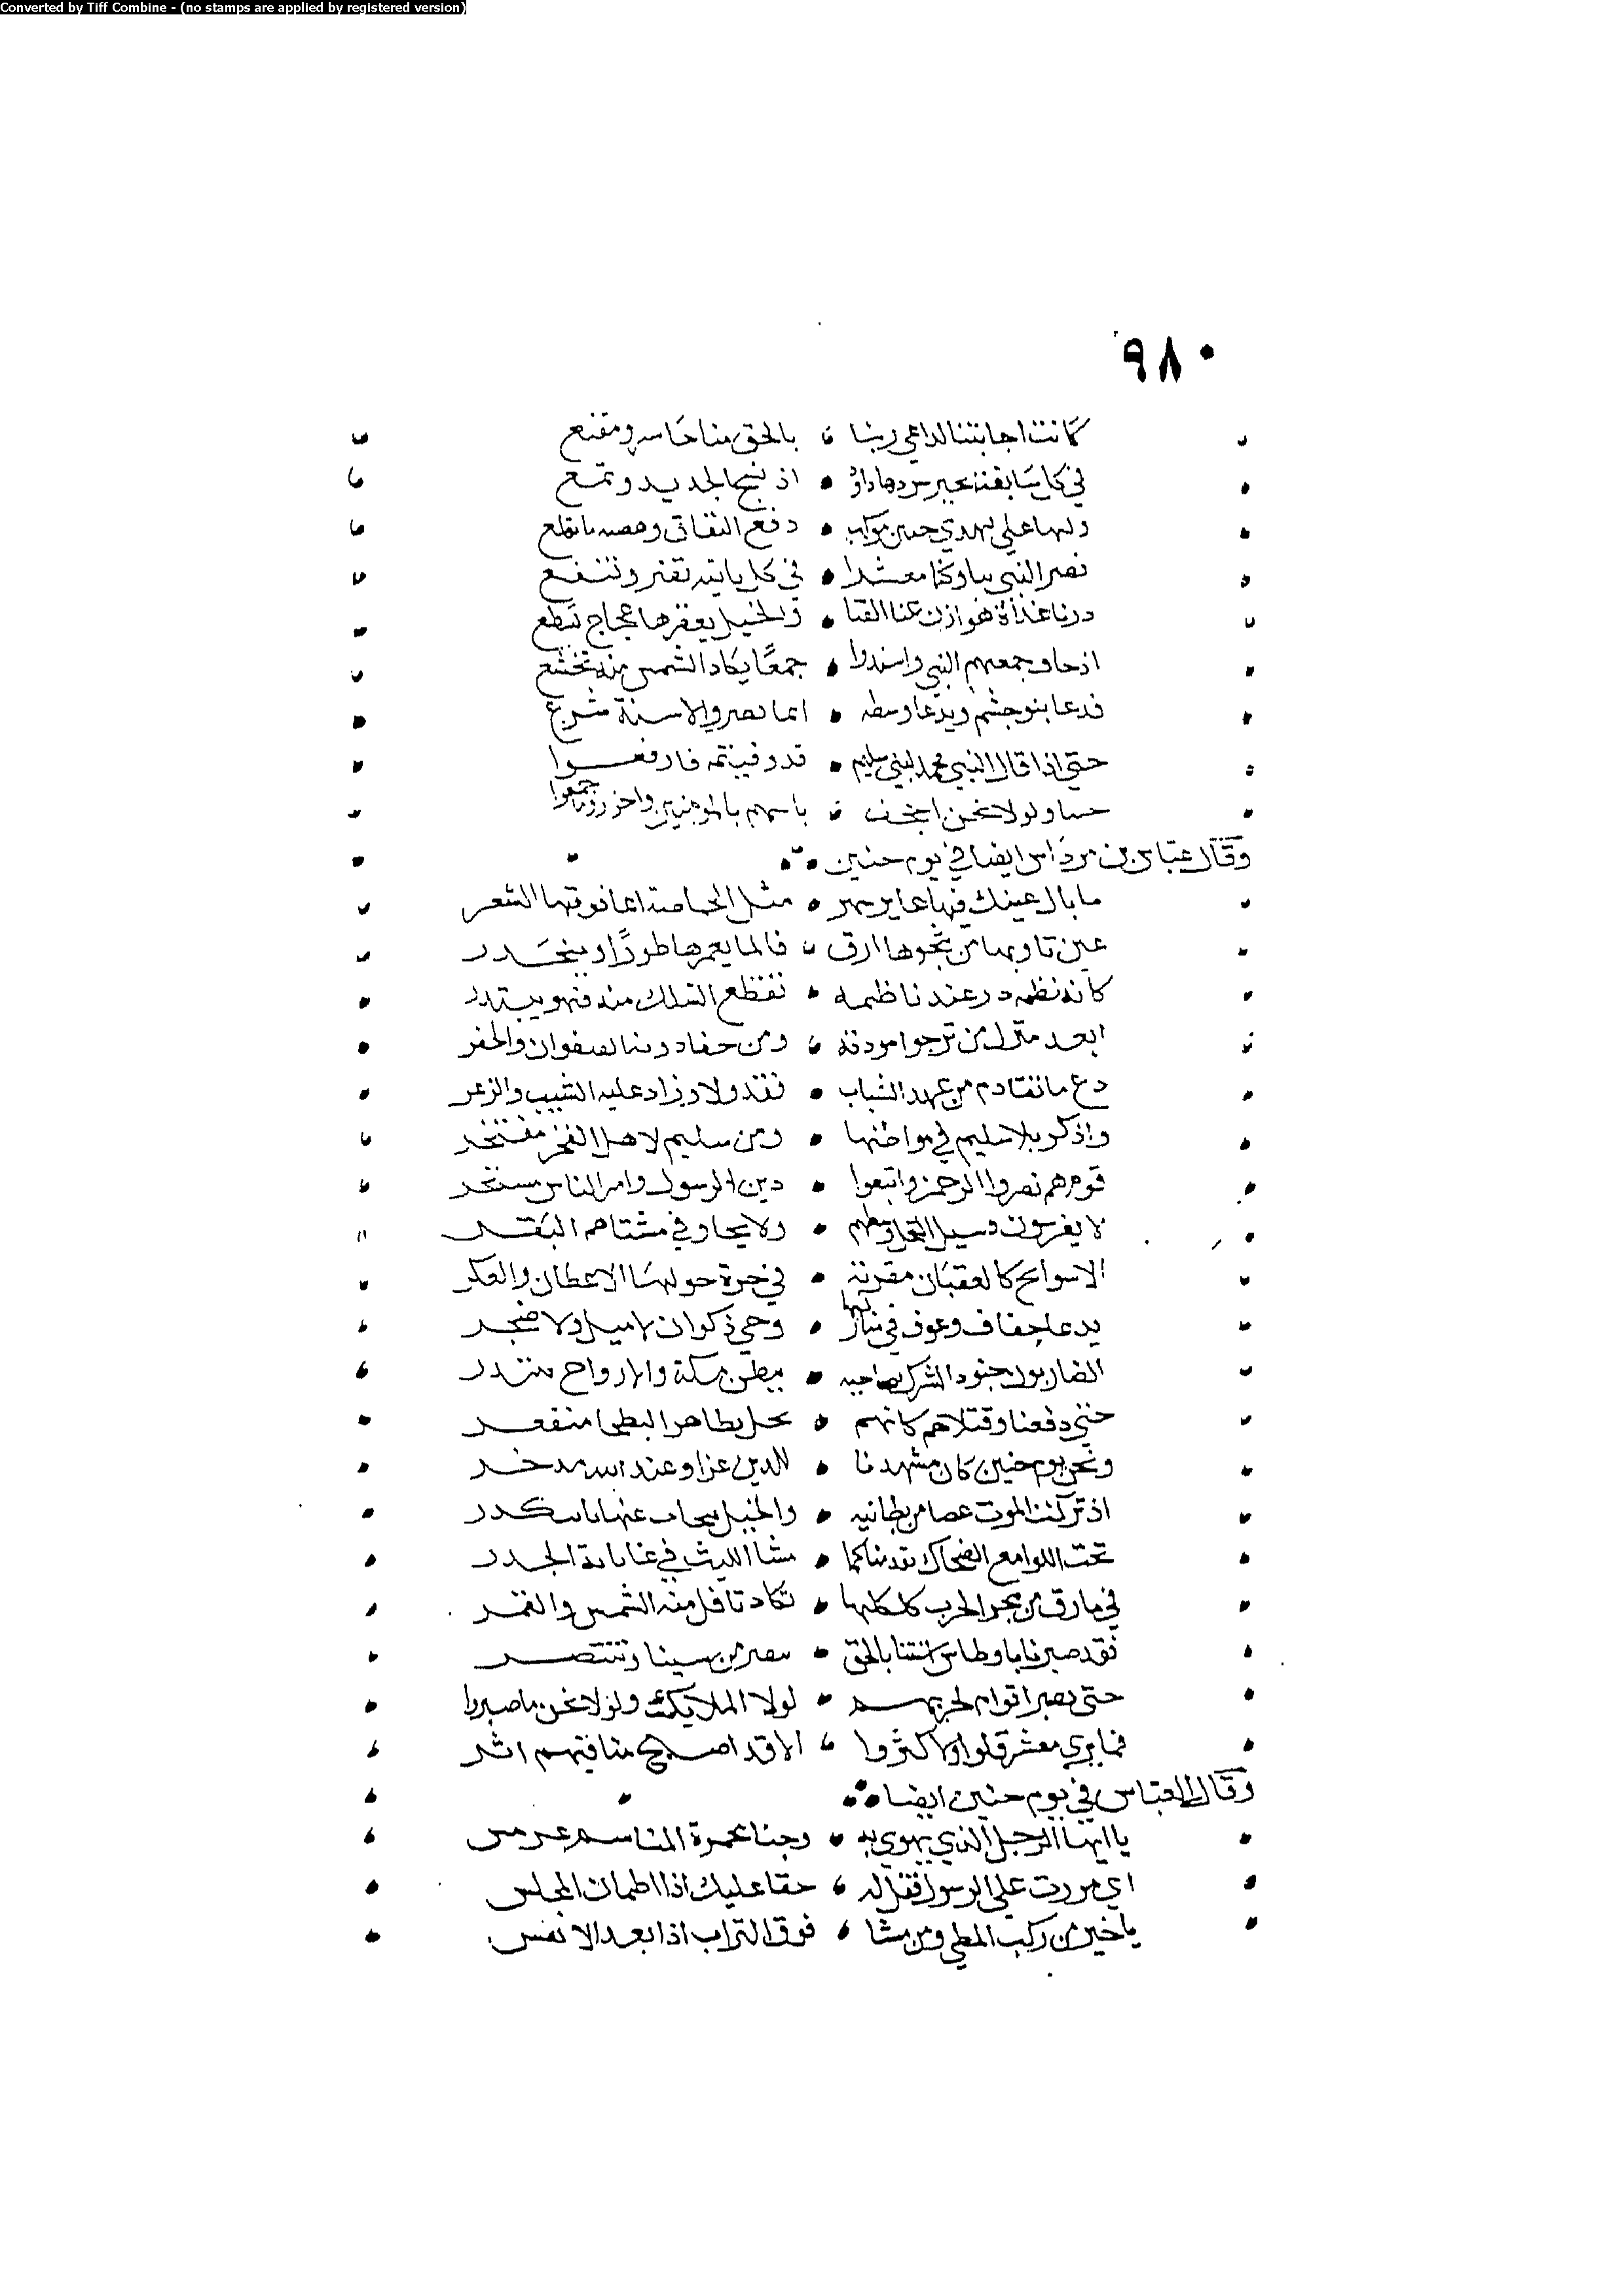 Converted by Tiff Combine - (no stamps are applied by registered version)
٩٨٠
كانت اجابتنا لداعي ربنا بالحق منا حاسر ومقنع
في كل سابغة تخير سردها داود اذ نسج الحديد وتبع
ولنا على بئري حنين موكب دفع النفاق وهضبه ما تقلع
نصر النبي بنا وكنا معشرا في كل نايبة نضر وننفع
درنا غداة هوازن عنا القنا والخيل يغمرها عجاج يسطع
اذ خاف جمعهم النبي واسندوا جمعًا يكاد الشمس منه تخشع
فدعا بنو جشم ويدعا وسطه نصر والاسنة شرع
حتى اذا قال النبي محمد لبني سليم قد وفيتم فارفعوا
ولولا نحن اجحف باسهم بالمومنين واحرزوا ما جمعوا
وقال عباس بن مرداس ايضا في يوم حنين
ما بال عينك فيها عاير سهر مثل الحماصة فوقها الشعر
عين تاوبها من شجوها ارق فالما يغمرها طورًا وينحدر
كانه نظم در عند ناظمه تقطع السلك منه فهو يبتدر
ابعد منزل من ترجوا مودته ومن حفا دونه الصفوان والحفر
دع ما تقادم من عهد الشباب فقد ولا وزاد عليه الشيب والزعر
واذكر بلا سليم في مواطنها ومن سليم لاهل الفخر مفتخر
قوم هم نصروا الرحمن واتبعوا دين الرسول وامر الناس مشتجر
لا يغرسون فسيل النخل وسطهم ولا يحاور في مشتاهم البقر
الا سوابح كالعقبان مقربة في حرة حولها الاعطان والعكر
يدعا خفاف وعوف في منازلها وحي ذكوان لا ميل ولا ضجر
الضاربون جنود الشرك ضاحيه ببطن مكة والارواح تبتدر
حتى دفعنا وقتلاهم كانهم نخل بظاهر البطحا منقعر
ونحن يوم حنين كان مشهدنا للدين عزا وعند الله مدخر
اذ تركب الموت بطانيه والخيل ينجاب عنها كدر
تحت اللوامع الضحاك يقدمنا كما مشا الليث في غاباته الخدر
في مازق من مجر الحرب كلكلها تكاد تافل منه الشمس والقمر
فقد صبرنا باوطاس اسنتنا بالحق ننصر من سينا وننتصر
حتى يصبر اقوام لحربهم لولا الملايكة ولولا نحن ما صبروا
فما يرى معشر قلوا ولا كثروا الا قد اصبح منا فيهم اثر
وقال العباس في يوم حنين ايضا
يا ايها الرجل الذي يهوي به وجنا مجمرة المناسم عرمس
اي مررت على الرسول فقل له حقا عليك اذا اطمان المجلس
يا خير من ركب المطي ومن مشا فوق التراب اذا بعد الانفس